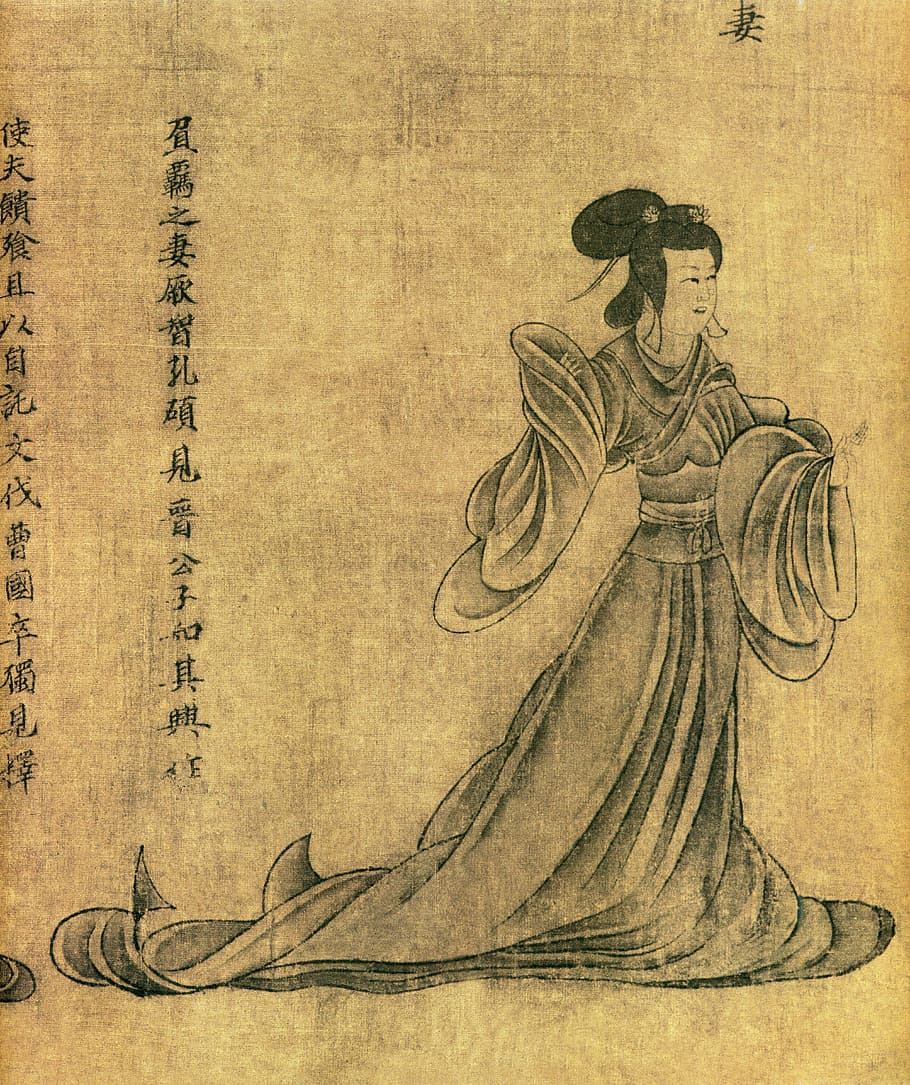 妻
負覊之妻厥智孔碩見晉公子知其興作
使夫饋飱且以自託文伐曹國卒獨見釋